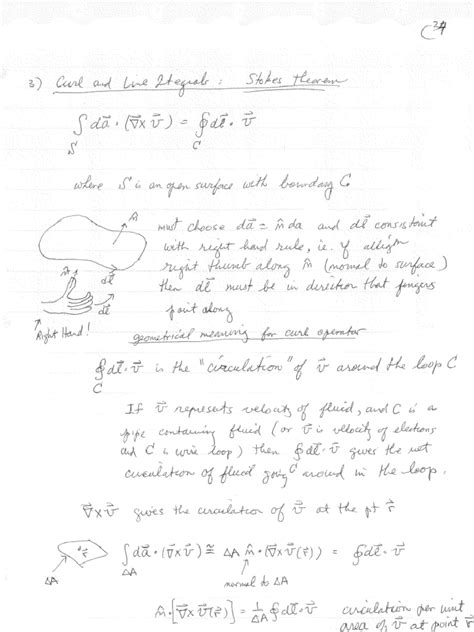 34
3) Curl and Line Integrals : Stokes theorem
∫_S da⃗ · (∇⃗ × v⃗) = ∮_C dℓ⃗ · v⃗
where S is an open surface with boundary C
n̂
must choose da⃗ = n̂ da and dℓ⃗ consistent
with right hand rule, ie. if allign
right thumb along n̂ (normal to surface)
then dℓ⃗ must be in direction that fingers
point along
n̂
dℓ⃗
dℓ⃗
Right Hand!
geometrical meaning for curl operator
∮_C dℓ⃗ · v⃗ is the "circulation" of v⃗ around the loop C
If v⃗ represents velocity of fluid, and C is a
pipe containing fluid (or v⃗ is velocity of electrons
and C is wire loop) then ∮_C dℓ⃗ · v⃗ gives the net
circulation of fluid going around in the loop.
∇⃗ × v⃗ gives the circulation of v⃗ at the pt r⃗
r⃗
ΔA
∫_ΔA da⃗ · (∇⃗ × v⃗) ≅ ΔA n̂ · (∇⃗ × v⃗(r⃗)) = ∮ dℓ⃗ · v⃗
normal to ΔA
n̂ · [∇⃗ × v⃗(r⃗)] = 1/ΔA ∮ dℓ⃗ · v⃗ circulation per unit
area of v⃗ at point r⃗